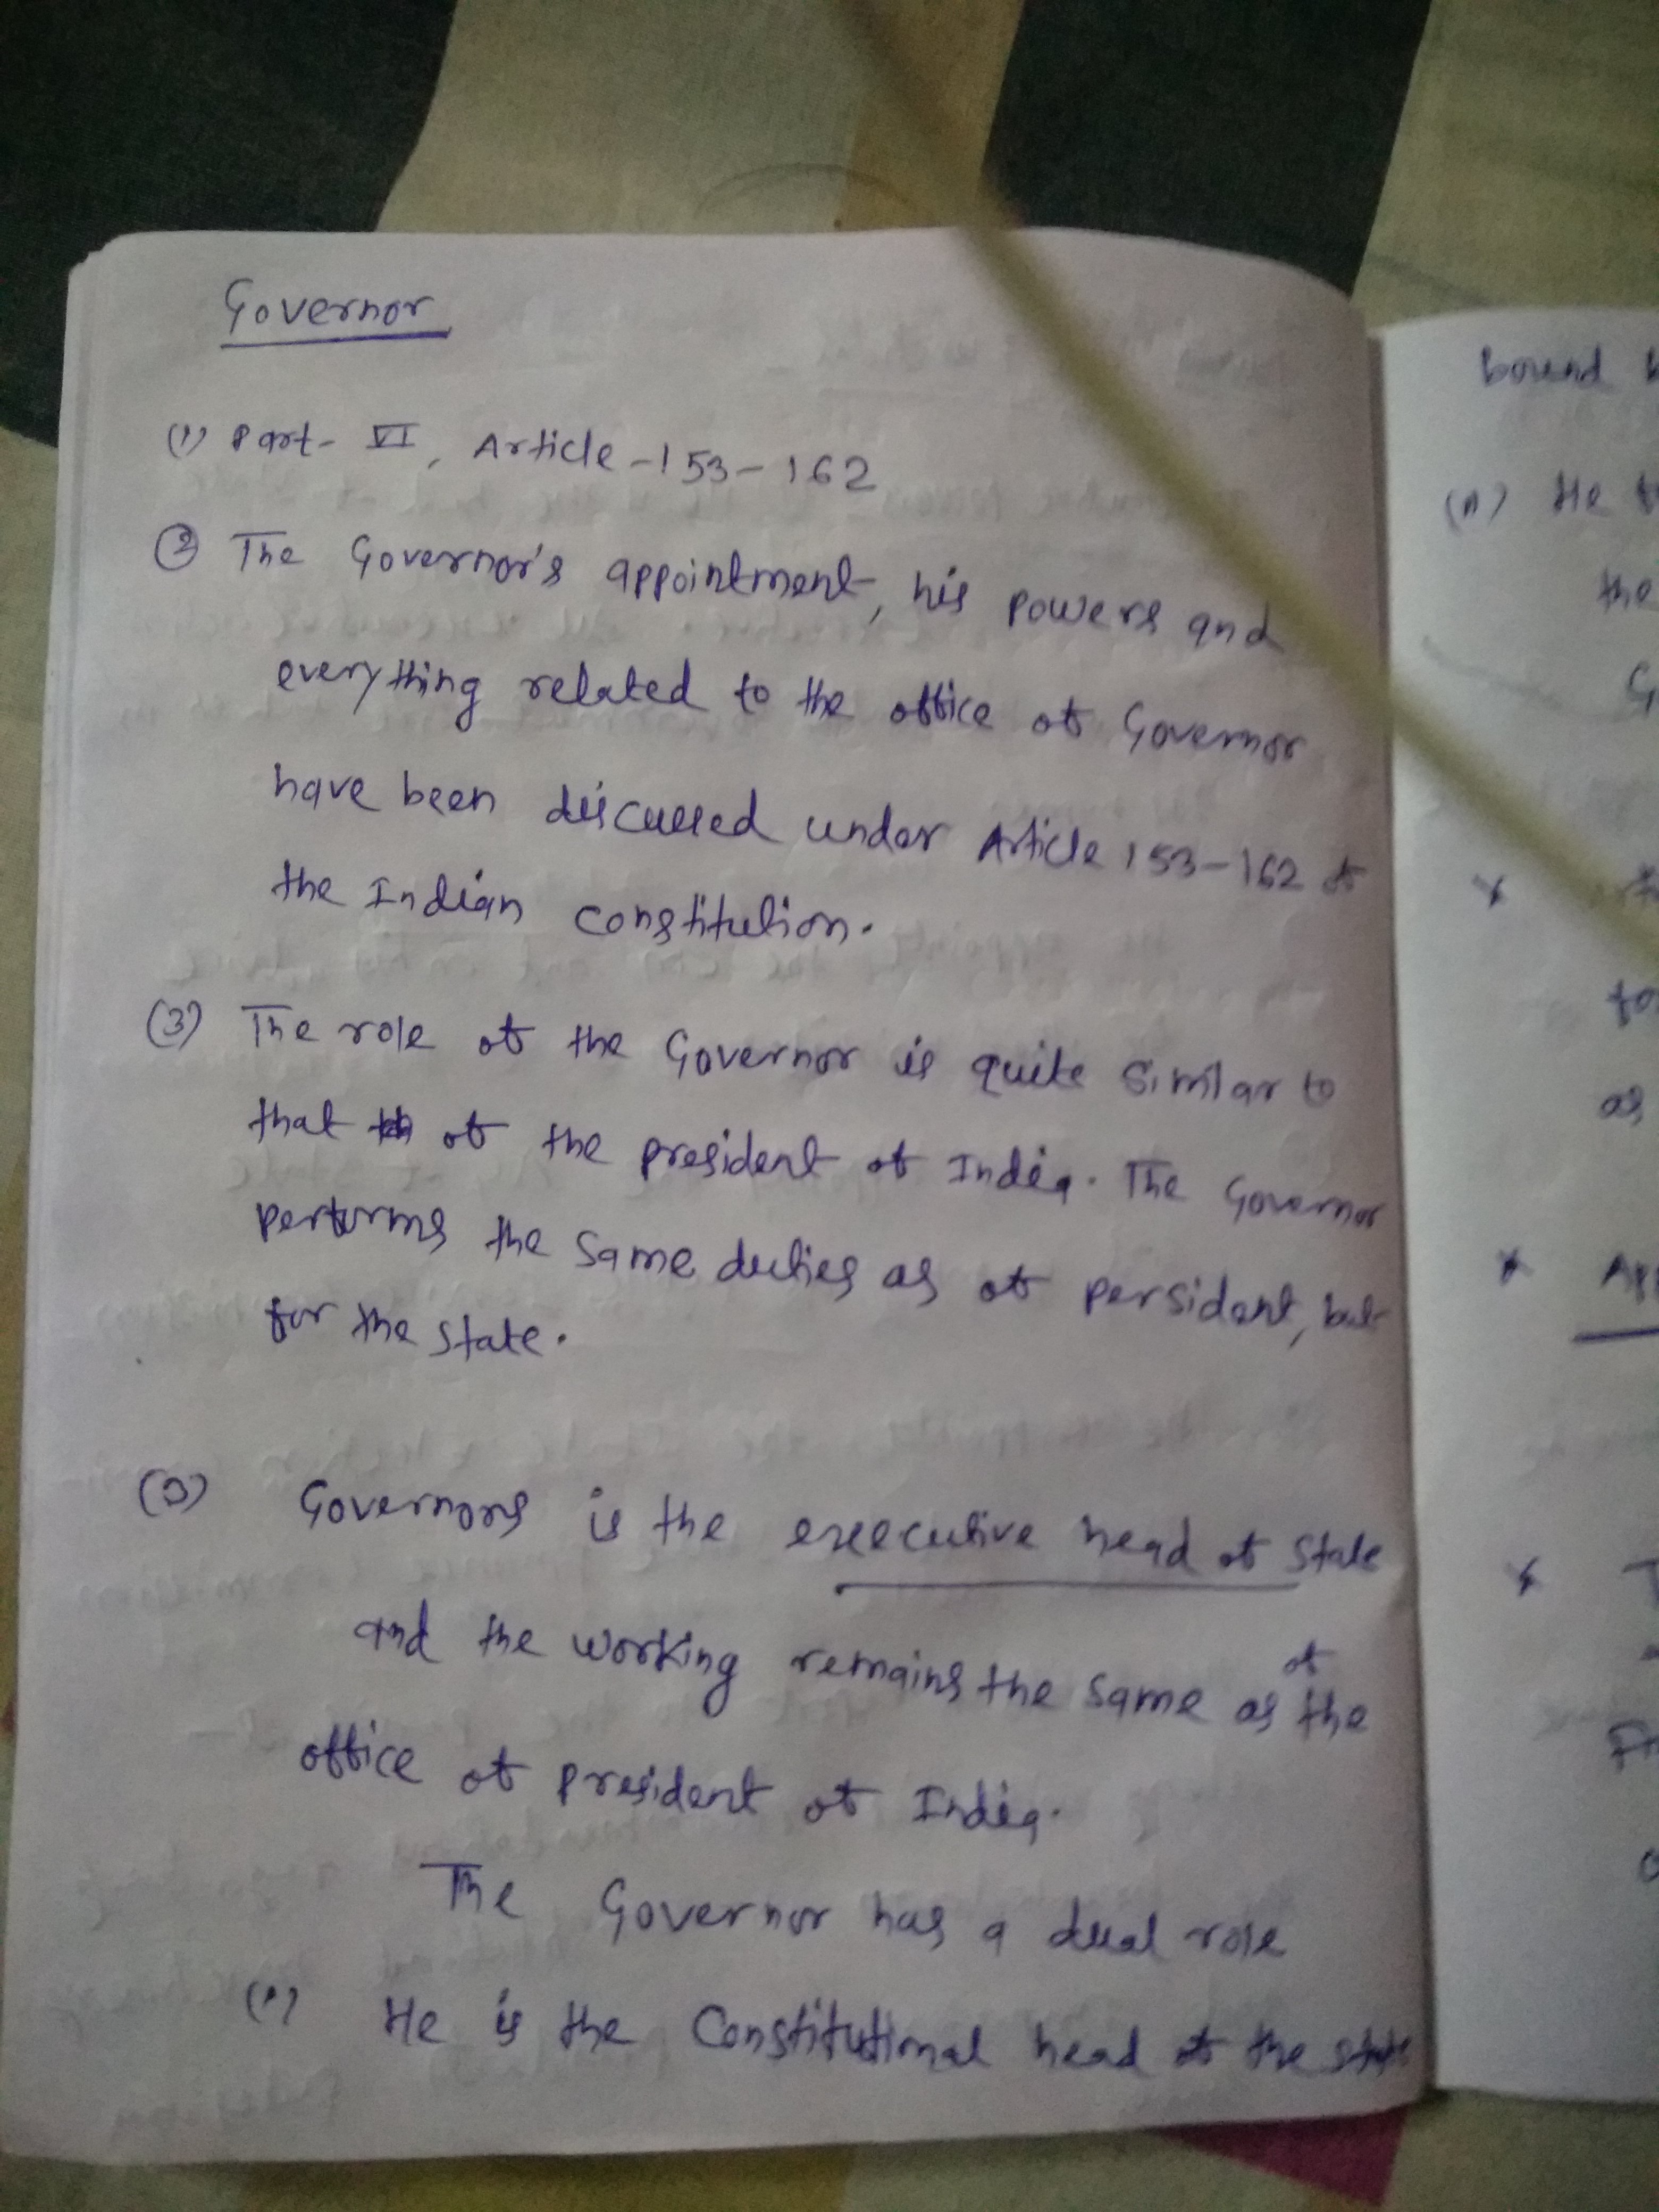 Governor
(1) Part- VI, Article -153-162
(2) The Governor's appointment, his powers and
everything related to the office of Governor
have been discussed under Article 153-162 of
the Indian constitution.
(3) The role of the Governor is quite similar to
that of the president of India. The Governor
performs the same duties as of persident, but
for the state.
(3) Governors is the executive head of state
and the working remains the same as of the
office of president of India.
The Governor has a dual role
(i) He is the Constitutional head of the state
bound
(ii) He
the
as